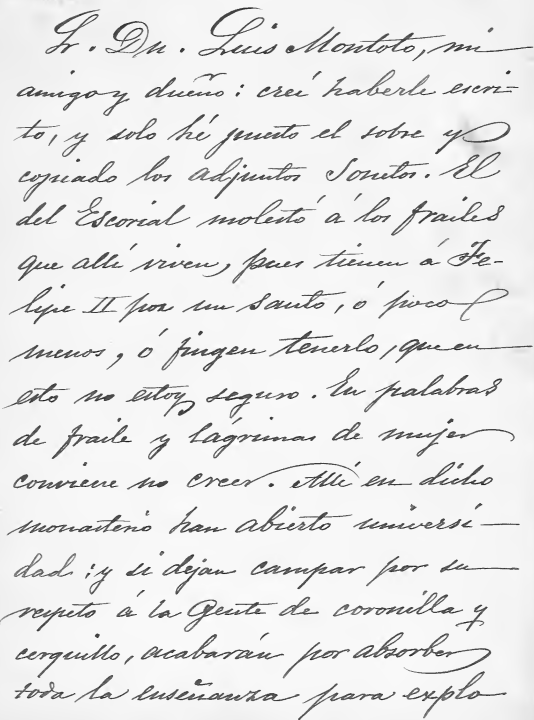 Sr. Dn. Luis Montoto, mi
amigo y dueño: creí haberle escri-
to, y solo hé puesto el sobre y
copiado los adjuntos Sonetos. El
del Escorial molestó á los frailes
que allí viven, pues tienen á Fe-
lipe II por un santo, ó poco
menos, ó fingen tenerlo, que en
esto no estoy seguro. En palabras
de fraile y lágrimas de mujer
conviene no creer. Allí en dicho
monasterio han abierto universi-
dad: y si dejan campar por su
respeto á la gente de coronilla y
cerquillo, acabarán por absorber
toda la enseñanza para explo